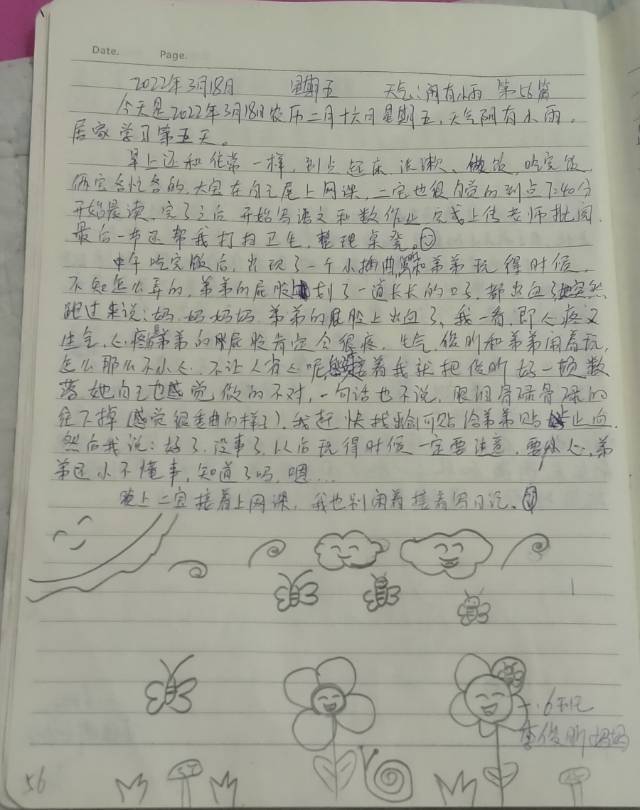 Date. Page.
2022年3月18日 星期五 天气:阴有小雨 第56篇
今天是2022年3月18日农历二月十六日星期五,天气阴有小雨。
居家学习第五天。
早上还和往常一样,到点起床、洗漱、做饭,吃完饭
俩宝各忙各的,大宝在自己屋上网课,二宝也很自觉的到点7:40分
开始晨读,完了之后开始写语文和数作业,交我上传老师批阅
最后一步还帮我打扫卫生,整理桌凳。
中午吃完饭后,出现了一个小插曲和弟弟玩得时候
不知怎么弄的,弟弟的屁股划了一道长长的口子,都出血了突然
跑过来说:妈妈妈妈弟弟的屁股上出血了,我一看即心疼又
生气,心疼弟弟的屁股肯定会很疼,生气俊昕和弟弟闹着玩,
怎么那么不小心,不让人省心呢,着我就把俊昕好一顿数
落,她自己也感觉做的不对,一句话也不说,眼泪骨碌骨碌的
往下掉(感觉很委曲的样子),我赶快找创可贴给弟弟贴止血
然后我说:好了,没事了,以后玩得时候一定要注意,要小心,弟
弟还小不懂事,知道了吗,嗯...
晚上二宝接着上网课,我也别闲着接着写日记。
一.6班
李俊昕妈妈
56